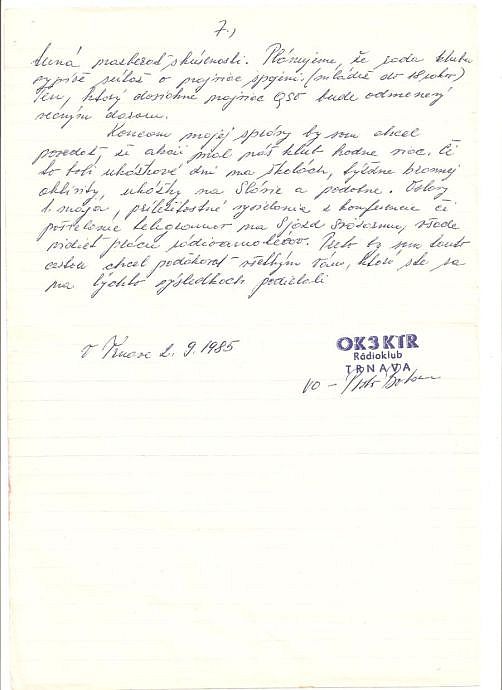 7.,
nazberať skúsenosti. Plánujeme, že rada klubu
vypíše súťaž o najviac spojení. (mládež do 18 rokov)
Ten, ktorý dosiahne najviac QSO bude odmenený
vecným darom.
Koncom mojej správy by som chcel
povedať, že akcií mal náš klub hodne viac. Či
to boli ukážkové dni na školách, týždne brannej
aktivity, ukážky na Slávie a podobne. Oslavy
1. mája, príležitostné vysielania z konferencie či
posielanie telegramov na Sjazd Sväzarmu, všade
vidieť prácu rádioamatérov. Preto by som touto
cestou chcel poďakovať všetkým Vám, ktorí ste sa
na týchto výsledkoch podieľali
V Trnave 2. 9. 1985
OK3KTR
Rádioklub
TRNAVA
VO -